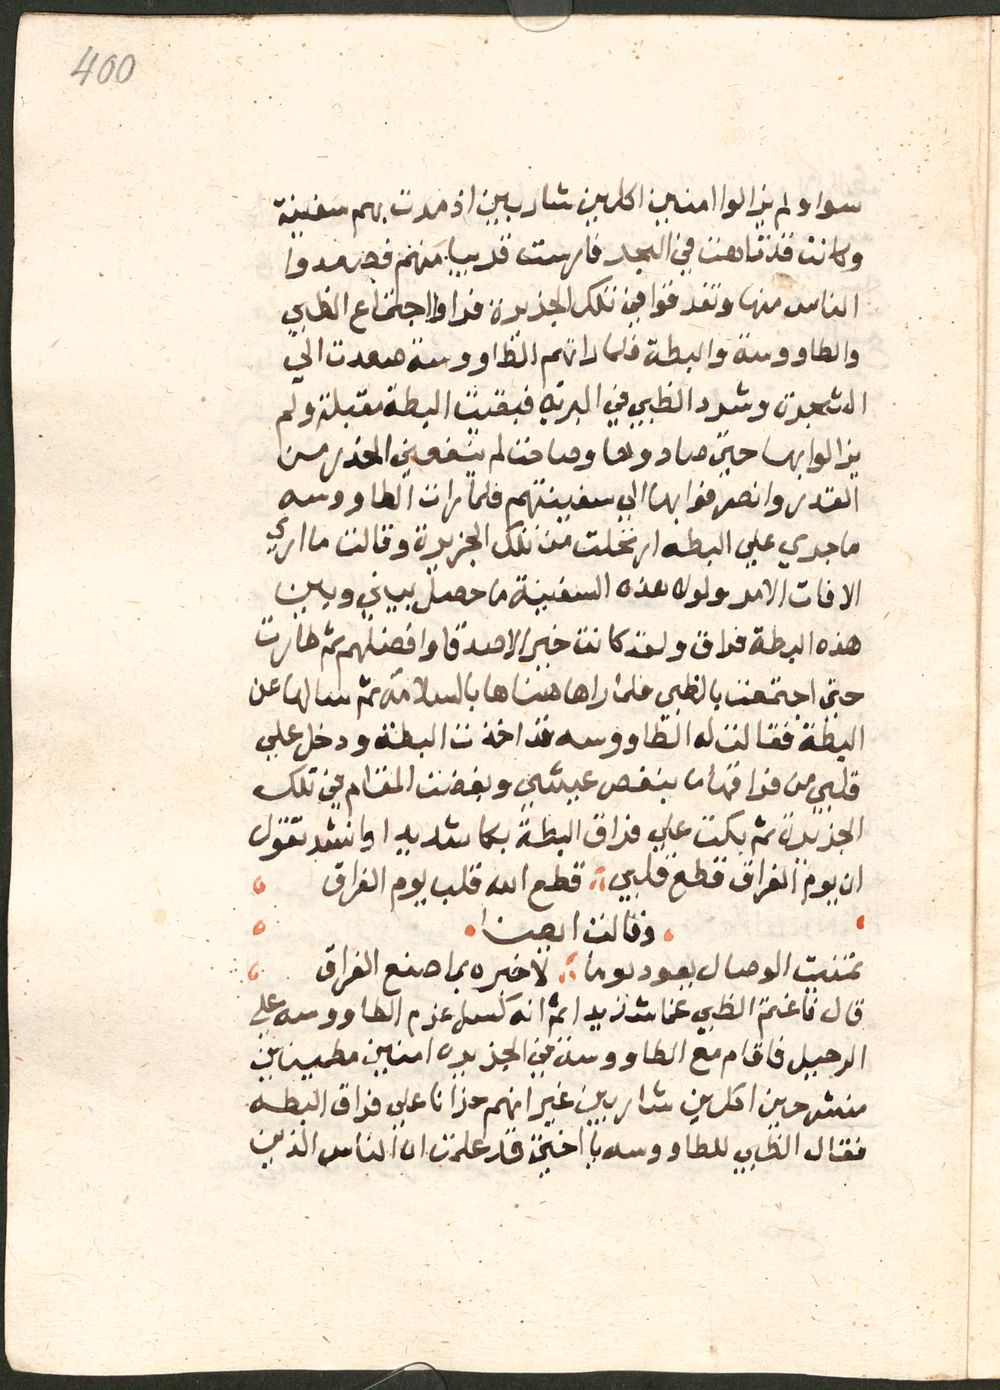 400
سوا ولم يزالوا امنين اكلين شاربين اذ مرت بهم سفينة
وكانت قد تاهت في البحر فارست قريبا منهم فصعدوا
الناس منها وتفرقوا في تلك الجزيرة فراوا اجتماع الظبي
والطاووسة والبطة فلما راتهم الطاووسة صعدت الي
الشجرة وشرد الظبي في البرية فبقيت البطة مقبلة ولم
يزالوا بها حتي صادوها وصاحت لم ينفعني الحذر من
القدر وانصرفوا بها الي سفينتهم فلما رات الطاووسه
ما جري علي البطه ارتحلت من تلك الجزيرة وقالت ما اري
الافات الامر ولولا هذه السفينة ما حصل بيني وبين
هذه البطة فراق ولقد كانت خير الاصدقا وافضلهم ثم طارت
حتي اجتمعت بالظبي فلما راها هناها بالسلامة ثم سالها عن
البطة فقالت له الطاووسه قد اخذت البطة ودخل علي
قلبي من فراقها ما ينغص عيشي وبغضت المقام في تلك
الجزيرة ثم بكت علي فراق البطة بكا شديدا وانشد تقول
ان يوم الفراق قطع قلبي قطع الله قلب يوم الفراق
وقالت ايضا
تمنيت الوصال يعود يوما لاخبره بما صنع الفراق
قال فاغتم الظبي غما شديدا ثم انه كسل عزم الطاووسه علي
الرحيل فاقام مع الطاووسة في الجزيره امنين مطمينين
منشرحين اكلين شاربين غير انهم حزانا علي فراق البطه
فقال الظبي للطاووسه يا اختي قد علمت ان الناس الذين